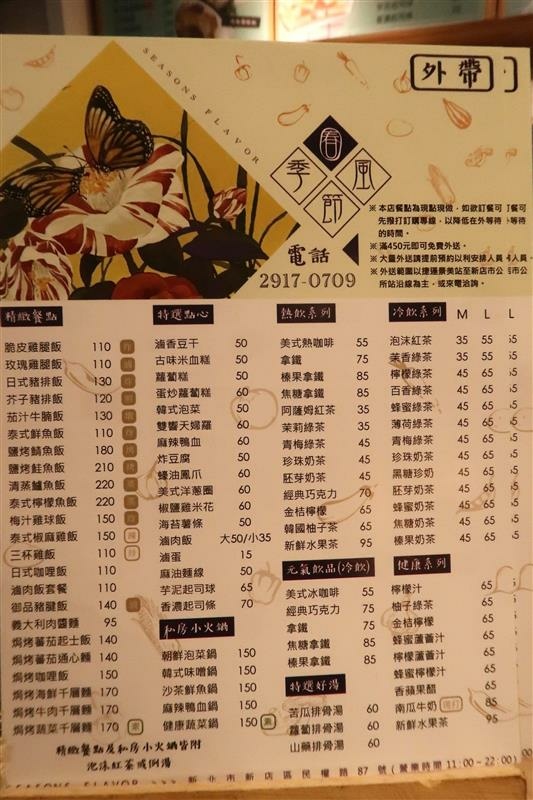 SEASONS FLAVOR
外帶
春
季 風
節
電話
2917-0709
※ 本店餐點為現點現做，如欲訂餐可
先撥打訂購專線，以降低在外等待
的時間。
※ 滿450元即可免費外送。
※ 大量外送請提前預約以利安排人員
※ 外送範圍以捷運景美站至新店市公
所站沿線為主，或來電洽詢。
精緻餐點
脆皮雞腿飯 110 炸
玫瑰雞腿飯 110
日式豬排飯 130 炸
芥子豬排飯 120
茄汁牛腩飯 130
泰式鮮魚飯 110 炸
鹽烤鯖魚飯 180 烤
鹽烤鮭魚飯 210 烤
清蒸鱸魚飯 220 蒸
泰式檸檬魚飯 220 蒸
梅汁雞球飯 150 炸
泰式椒麻雞飯 150 辣
三杯雞飯 110 炒
日式咖哩飯 110
滷肉飯套餐 110
御品豬腱飯 140 滷
義大利肉醬麵 95
焗烤蕃茄起士飯 140
焗烤蕃茄通心麵 140
焗烤咖哩飯 150
焗烤海鮮千層麵 170
焗烤牛肉千層麵 170
焗烤蔬菜千層麵 170 素
精緻餐點及私房小火鍋皆附
泡沫紅茶或例湯
特選點心
滷香豆干 50
古味米血糕 50
蘿蔔糕 50
蛋炒蘿蔔糕 60
韓式泡菜 50
雙響天婦羅 60
麻辣鴨血 60
炸豆腐 50
蠔油鳳爪 60
美式洋蔥圈 60
椒鹽雞米花 60
海苔薯條 50
滷肉飯 大50/小35
滷蛋 15
麻油麵線 50
芋泥起司球 65
香濃起司條 70
私房小火鍋
朝鮮泡菜鍋 150
韓式味噌鍋 150
沙茶鮮魚鍋 150
麻辣鴨血鍋 150
健康蔬菜鍋 150 素
熱飲系列
美式熱咖啡 55
拿鐵 75
榛果拿鐵 85
焦糖拿鐵 85
阿薩姆紅茶 35
茉莉綠茶 35
青梅綠茶 45
珍珠奶茶 45
胚芽奶茶 45
經典巧克力 70
金桔檸檬 65
韓國柚子茶 65
新鮮水果茶 95
元氣飲品(冷飲)
美式冰咖啡 55
經典巧克力 75
拿鐵 75
焦糖拿鐵 85
榛果拿鐵 85
特選好湯
苦瓜排骨湯 60
蘿蔔排骨湯 60
山藥排骨湯 60
冷飲系列 M L L
泡沫紅茶 35 55
茉香綠茶 35 55
檸檬綠茶 45 65
百香綠茶 45 65
蜂蜜綠茶 45 65
薄荷綠茶 45 65
青梅綠茶 45 65
珍珠奶茶 45 65
黑糖珍奶 45 65
胚芽奶茶 45 65
蜂蜜奶茶 45 65
焦糖奶茶 45 65
榛果奶茶 45 65
健康系列
檸檬汁 65
柚子綠茶 65
金桔檸檬 65
蜂蜜蘆薈汁 65
檸檬蘆薈汁 65
金蜜檸檬汁 65
香蘋果醋 65
南瓜牛奶 現打 85
新鮮水果茶 95
SEASONS FLAVOR >>> 新北市新店區民權路 87 號 (營業時間 11:00~22:00)